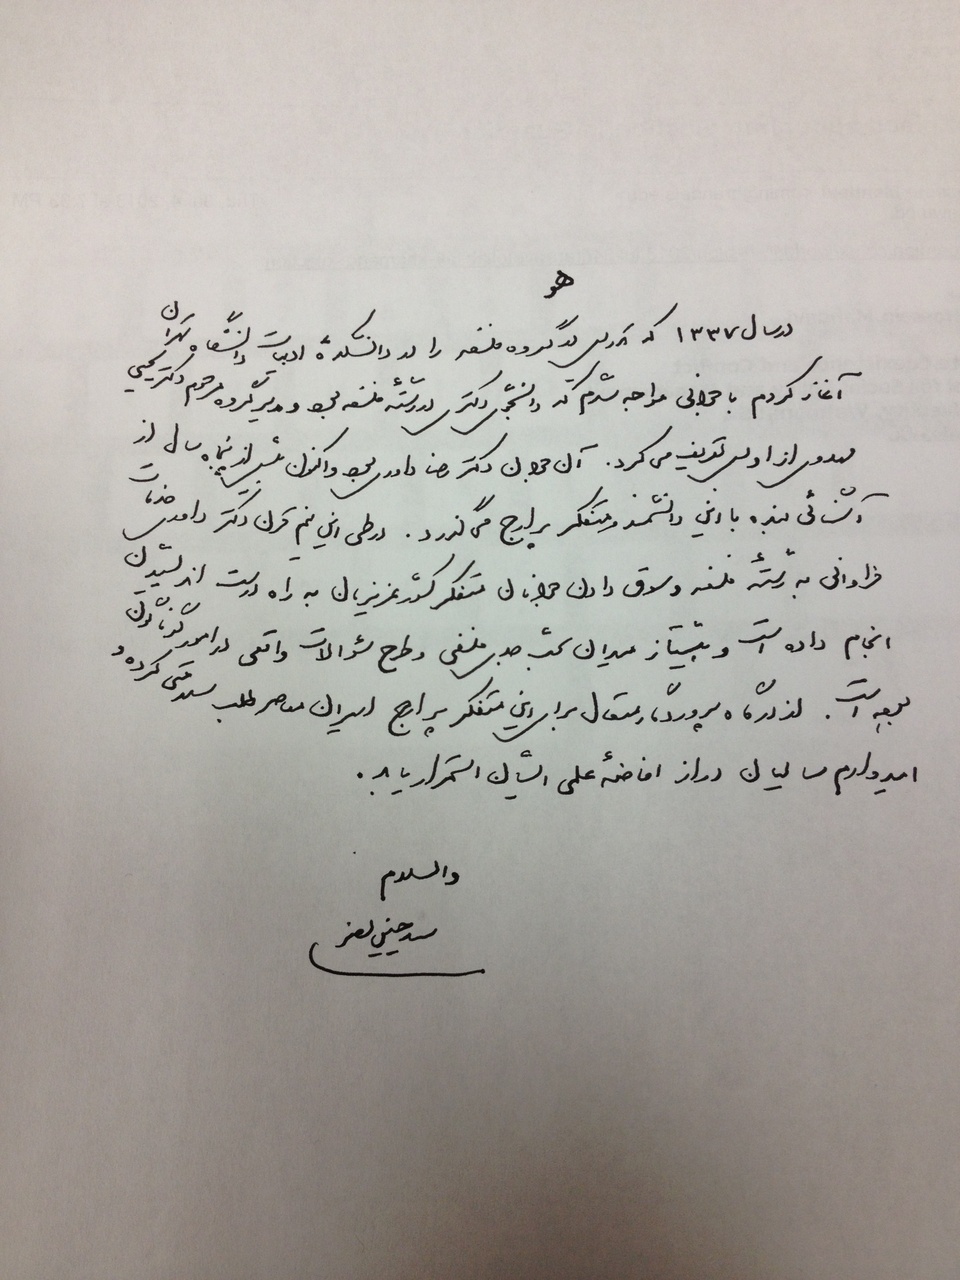 هو
در سال ۱۳۳۷ که تدریس در گروه فلسفه را در دانشکدهٔ ادبیات دانشگاه تهران
آغاز کردم با جوانی مواجه شدم که دانشجوی دکتری در رشتهٔ فلسفه بود و مدیر گروه مرحوم دکتر یحیی
مهدوی از او بس تعریف می‌کرد. آن جوان دکتر رضا داوری بود و اکنون بیش از پنجاه سال از
آشنائی بنده با این دانشمند و متفکر پر ارج می‌گذرد. در طی این نیم قرن دکتر داوری خدمات
فراوانی به رشتهٔ فلسفه و سوق دادن جوانان متفکر کشور عزیزمان به راه درست اندیشیدن
انجام داده است و پیشتاز میدان بحث جدی فلسفی و طرح سئوالات واقعی در امور گوناگون
بوده است. از درگاه پروردگار متعال برای این متفکر پر ارج ایران معاصر طلب سلامتی کرده و
امیدوارم سالیان دراز افاضهٔ علمی ایشان استمرار یابد.
والسلام
سید حسین نصر